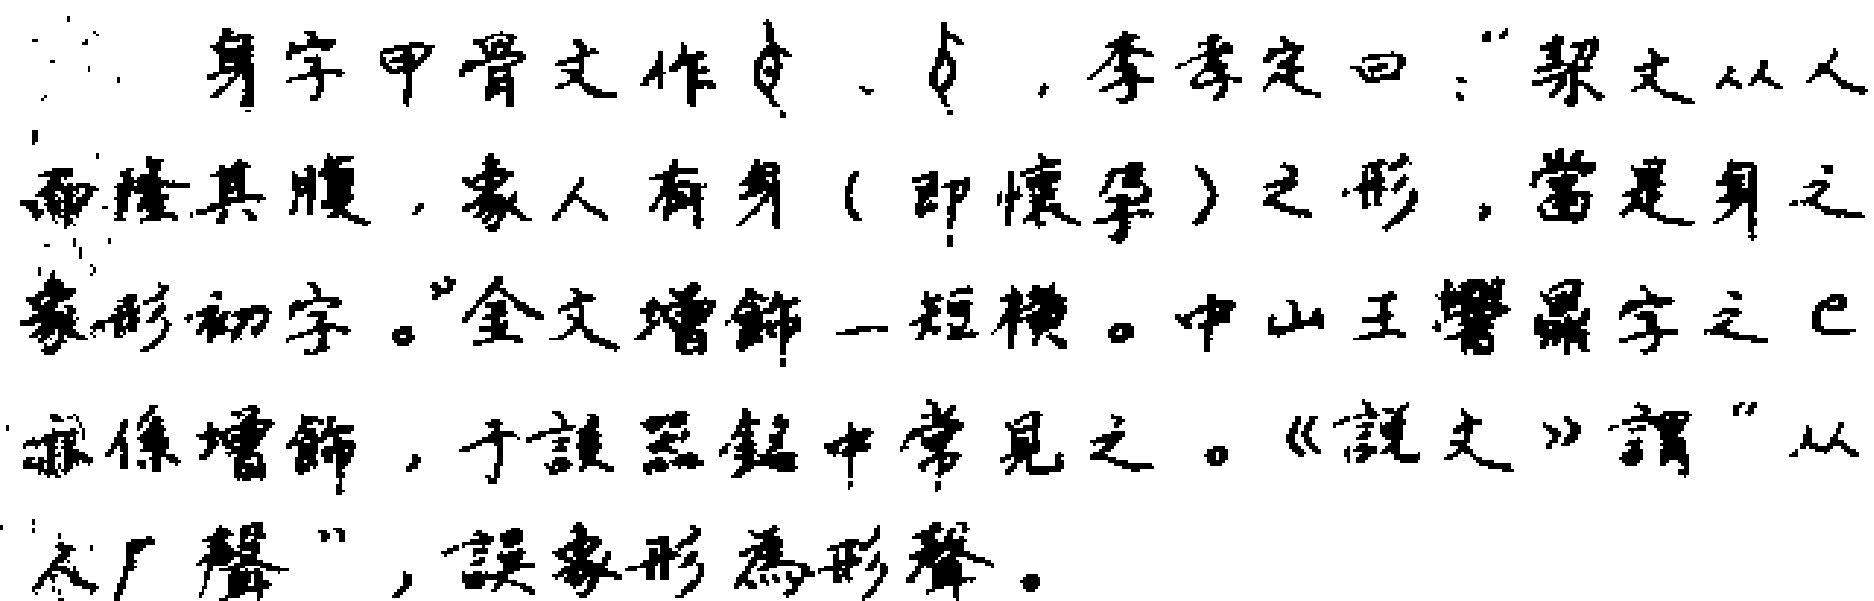 身字甲骨文作、，李孝定曰："栔文从人
而隆其腹，象人有身（即懷孕）之形，當是身之
象形初字。"金文增飾一短橫。中山王䰜鼎字之
亦係增飾，于該器銘中常見之。《説文》謂"从
人厂聲"，誤象形為形聲。